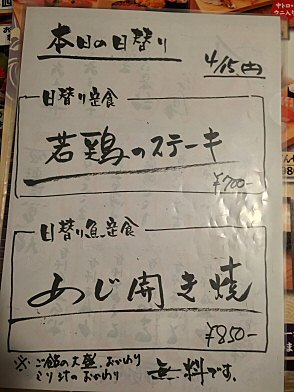 本日の日替り
4/15
日替り定食
若鶏のステーキ
¥700-
日替り魚定食
あじ開き焼
¥850-
※ ご飯の大盛、おかわり
とり汁のおかわり 無料です。